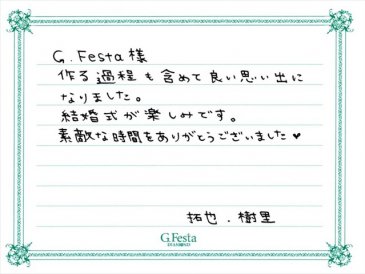 G.Festa様
作る過程も含めて良い思い出に
なりました。
結婚式が楽しみです。
素敵な時間をありがとうございました♥
拓也.樹里
G.Festa
DIAMOND